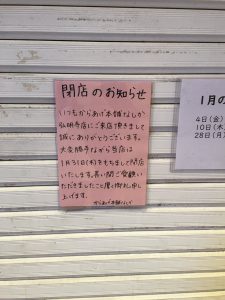 閉店のお知らせ
いつもからあげ本舗なしか
弘明寺店にご来店頂きまして
誠にありがとうございます。
大変勝手ながら当店は
1月31日(木)をもちまして閉店
いたします。長い間ご愛顧い
ただきましたこと厚く御礼申し
上げます。
からあげ本舗なしか
1月の
4日(金)
10日(木
28日(月)